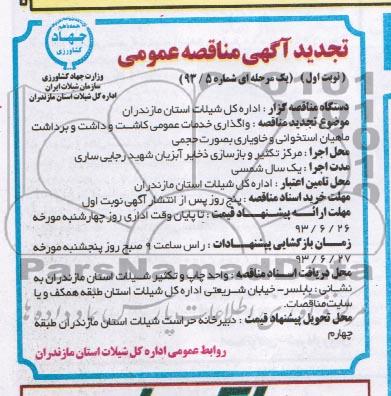 همه با هم
جهاد
کشاورزی
وزارت جهاد کشاورزی
سازمان شیلات ایران
اداره کل شیلات استان مازندران
تجدید آگهی مناقصه عمومی
( نوبت اول ) (یک مرحله ای شماره ۵ / ۹۳ )
دستگاه مناقصه گزار : اداره کل شیلات استان مازندران
موضوع تجدید مناقصه : واگذاری خدمات عمومی کاشت و داشت و برداشت
ماهیان استخوانی و خاویاری بصورت حجمی
محل اجرا : مرکز تکثیر و بازسازی ذخایر آبزیان شهید رجایی ساری
مدت اجرا : یک سال شمسی
محل تامین اعتبار : اداره کل شیلات استان مازندران
مهلت خرید اسناد مناقصه : پنج روز پس از انتشار آگهی نوبت اول
مهلت ارائه پیشنهاد قیمت : تا پایان وقت اداری روز چهارشنبه مورخه
۲۶ / ۶ / ۹۳
زمان بازگشایی پیشنهادات : راس ساعت ۹ صبح روز پنجشنبه مورخه
۲۷ / ۶ / ۹۳
محل دریافت اسناد مناقصه : واحد چاپ و تکثیر شیلات استان مازندران به
نشانی : بابلسر- خیابان شریعتی اداره کل شیلات استان طبقه همکف و یا
سایت مناقصات.
محل تحویل پیشنهاد قیمت : دبیرخانه حراست شیلات استان مازندران طبقه
چهارم
روابط عمومی اداره کل شیلات استان مازندران